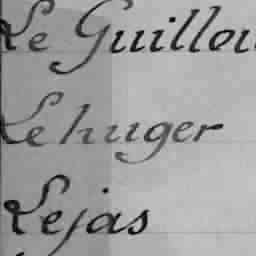 Le Guillou
Lehuger
Lejas